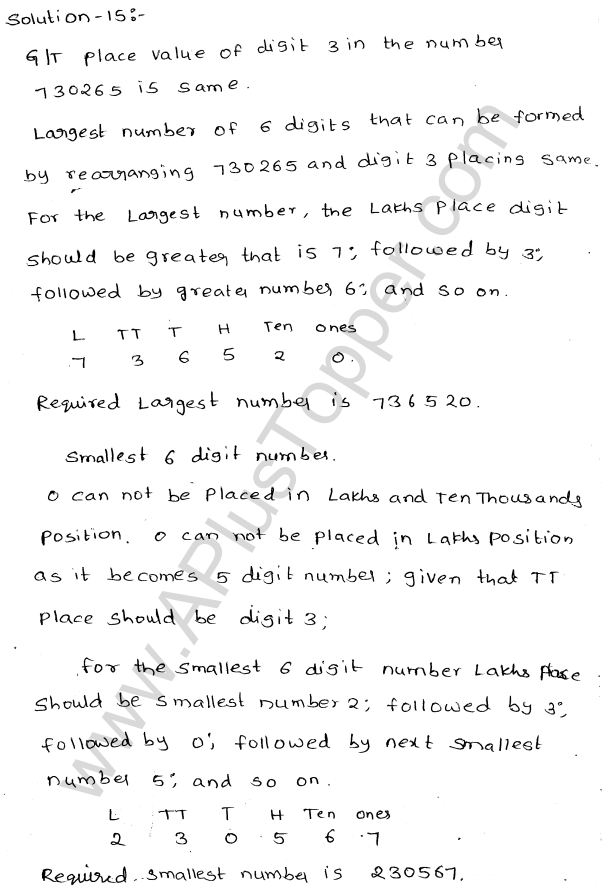 Solution-15:-
G/T place value of digit 3 in the number
730265 is same.
Largest number of 6 digits that can be formed
by rearranging 730265 and digit 3 placing same.
For the Largest number, the Lakhs place digit
should be greater that is 7; followed by 3;
followed by greater number 6; and so on.
L TT T H Ten ones
7 3 6 5 2 0.
Required Largest number is 736520.
Smallest 6 digit number.
0 can not be placed in Lakhs and Ten Thousands
position. 0 can not be placed in Lakhs position
as it becomes 5 digit number; given that TT
place should be digit 3;
for the smallest 6 digit number Lakhs place
should be smallest number 2; followed by 3;
followed by 0; followed by next smallest
number 5; and so on.
L TT T H Ten ones
2 3 0 5 6 7
Required smallest number is 230567.
www.APlusTopper.com